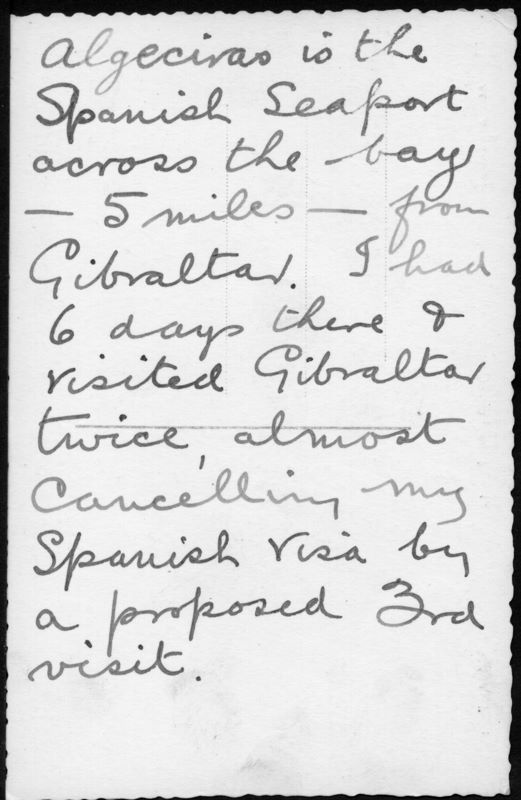 Algeciras is the
Spanish Seaport
across the bay
— 5 miles — from
Gibraltar. I had
6 days there &
visited Gibraltar
twice, almost
Cancelling my
Spanish Visa by
a proposed 3rd
visit.